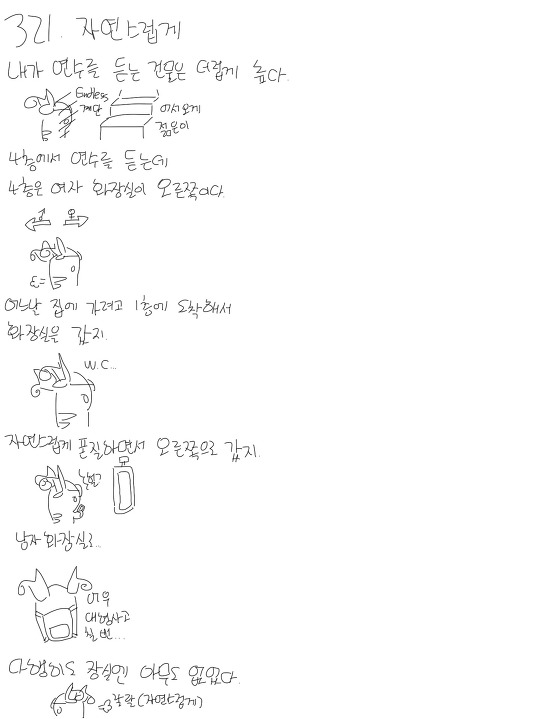 321. 자연스럽게
내가 연수를 듣는 건물은 더럽게 높다.
Endless
계단
어서오게
젊은이
4층에서 연수를 듣는데
4층은 여자 화장실이 오른쪽이다.
♂ ♀
어느날 집에 가려고 1층에 도착해서
화장실을 갔지.
W.C...
자연스럽게 폰질하면서 오른쪽으로 갔지.
남자 화장실로...
어우
대형사고
칠 뻔...
다행히도 장실엔 아무도 없었다.
(자연스럽게)